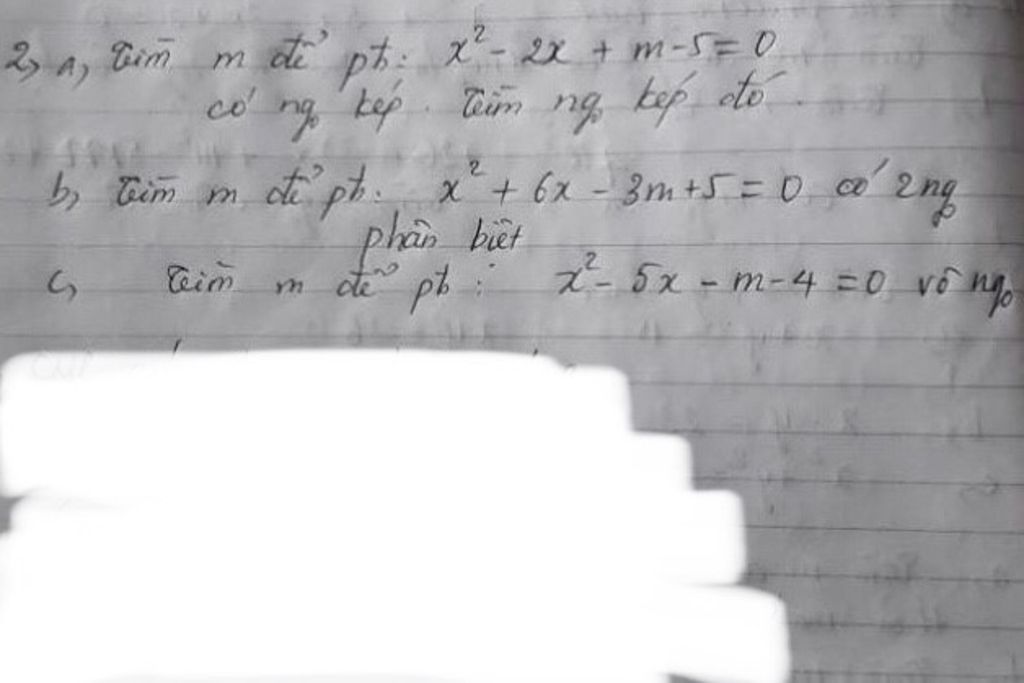 2, a, Tìm m để pt: x² - 2x + m - 5 = 0
có ng° kép. Tìm ng° kép đó.
b, Tìm m để pt: x² + 6x - 3m + 5 = 0 có 2 ng°
phân biệt
c, Tìm m để pt: x² - 5x - m - 4 = 0 vô ng°